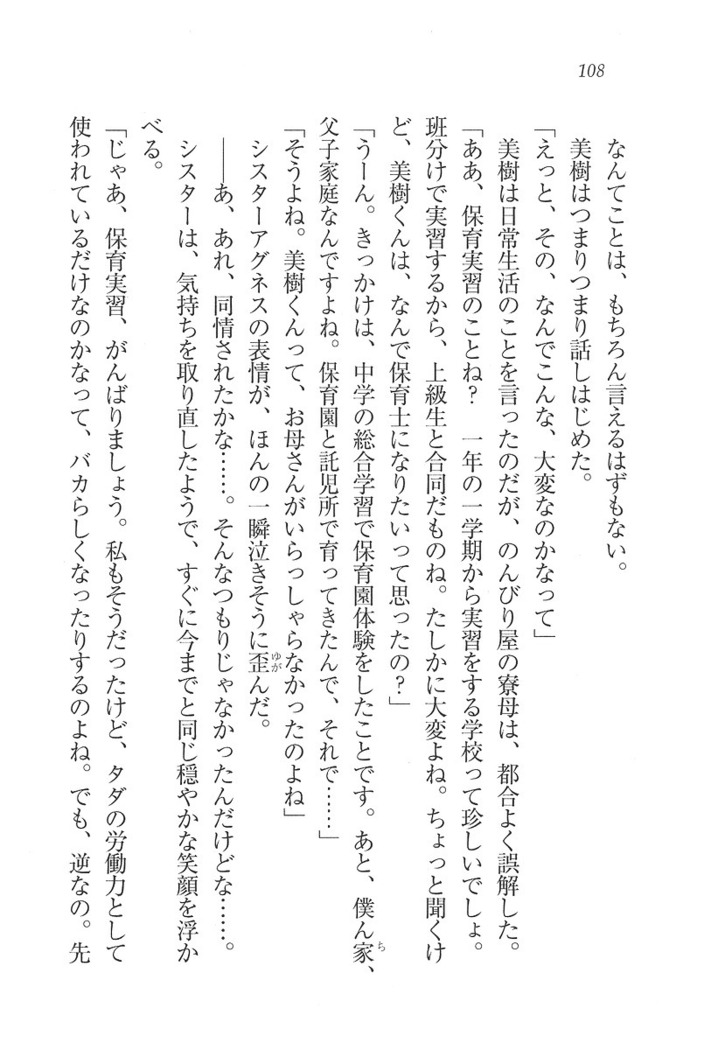 108
なんてことは、もちろん言えるはずもない。
美樹はつまりつまり話しはじめた。
「えっと、その、なんでこんな、大変なのかなって」
美樹は日常生活のことを言ったのだが、のんびり屋の寮母は、都合よく誤解した。
「ああ、保育実習のことね？　一年の一学期から実習をする学校って珍しいでしょ。
班分けで実習するから、上級生と合同だものね。たしかに大変よね。ちょっと聞くけ
ど、美樹くんは、なんで保育士になりたいって思ったの？」
「うーん。きっかけは、中学の総合学習で保育園体験をしたことです。あと、僕ん家、
父子家庭なんですよね。保育園と託児所で育ってきたんで、それで……」
「そうよね。美樹くんって、お母さんがいらっしゃらなかったのよね」
シスターアグネスの表情が、ほんの一瞬泣きそうに歪んだ。
――あ、あれ、同情されたかな……。そんなつもりじゃなかったんだけどな……。
シスターは、気持ちを取り直したようで、すぐに今までと同じ穏やかな笑顔を浮か
べる。
「じゃあ、保育実習、がんばりましょう。私もそうだったけど、タダの労働力として
使われているだけなのかなって、バカらしくなったりするのよね。でも、逆なの。先